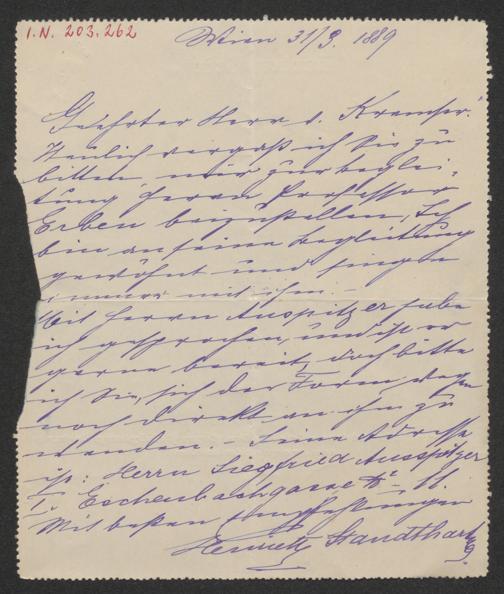 I.N. 203.262
Wien 31/3. 1889
Geehrter Herr v. Kremser!
Neulich vergaß ich Sie zu
bitten, mir zur Beglei-
tung Herrn Professor
Erben beizustellen, ich
bin an seine Begleitung
gewöhnt und singe
immer mit ihm. -
Mit Herrn Auspitzer habe
ich gesprochen, und ist er
gerne bereit, doch bitte
ich Sie, sich der Form wegen
noch direkt an ihn zu
wenden. - Seine Adresse
ist: Herrn Siegfried Auspitzer
I. Eschenbachgasse 11.
Mit besten Empfehlungen
Henriette Standthartner